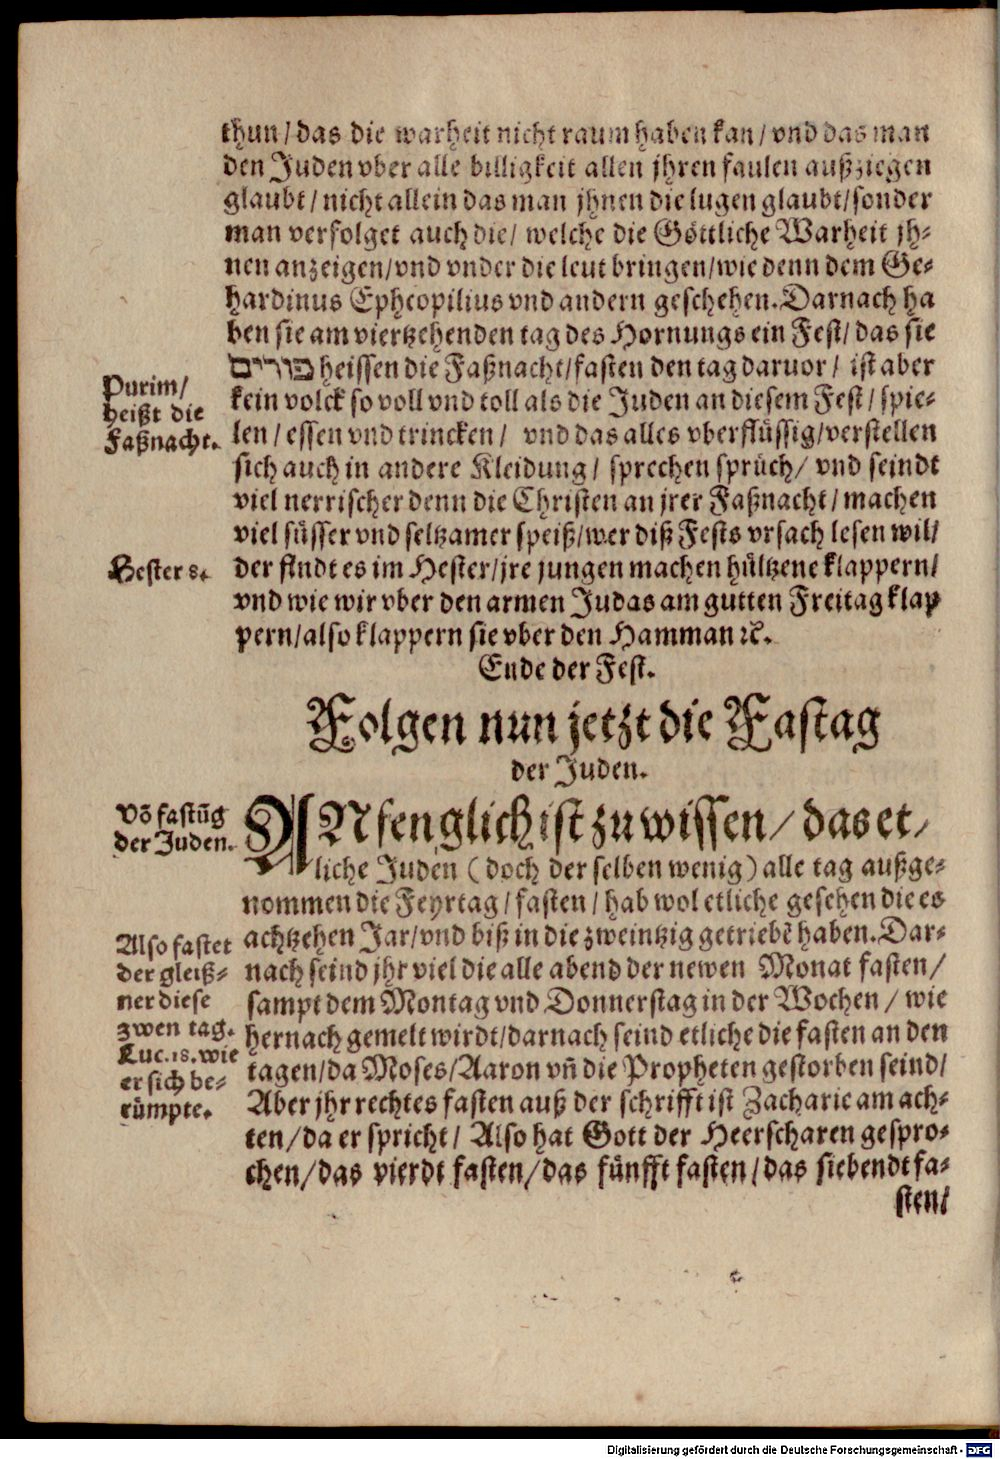 thun/das die warheit nicht raum haben kan/vnd das man
den Juden vber alle billigkeit allen jhren faulen außziegen
glaubt/nicht allein das man jhnen die lugen glaubt/sonder
man verfolget auch die/ welche die Göttliche Warheit jh-
nen anzeigen/vnd vnder die leut bringen/wie denn dem Ge-
hardinus Ephcopilius vnd andern geschehen. Darnach ha
ben sie am viertzehenden tag des Hornungs ein Fest/das sie
פורים heissen die Faßnacht/fasten den tag daruor/ ist aber
Purim/
heißt die
Faßnacht.
kein volck so voll vnd toll als die Juden an diesem Fest/spie-
len/essen vnd trincken/ vnd das alles vberflüssig/verstellen
sich auch in andere Kleidung/ sprechen sprüch/ vnd seindt
viel nerrischer denn die Christen an jrer Faßnacht/machen
viel süsser vnd seltzamer speiß/wer diß Fests vrsach lesen wil/
Hester 8.
der findt es im Hester/jre jungen machen hültzene klappern/
vnd wie wir vber den armen Judas am gutten Freitag klap
pern/also klappern sie vber den Hamman ꝛc.
Ende der Fest.
Folgen nun jetzt die Fastag
der Juden.
Võ fastũg
der Juden.
ANfenglich ist zu wissen/das et/
liche Juden (doch der selben wenig) alle tag außge-
nommen die Feyrtag/fasten/hab wol etliche gesehen die es
achtzehen Jar/vnd biß in die zweintzig getriebẽ haben. Dar-
Also fastet
der gleiß-
ner diese
zwen tag.
Luc.18.wie
er sich be-
rümpte.
nach seind jhr viel die alle abend der newen Monat fasten/
sampt dem Montag vnd Donnerstag in der Wochen/ wie
hernach gemelt wirdt/darnach seind etliche die fasten an den
tagen/da Moses/Aaron vñ die Propheten gestorben seind/
Aber jhr rechtes fasten auß der schrifft ist Zacharie am ach-
ten/da er spricht/ Also hat Gott der Heerscharen gespro-
chen/das vierdt fasten/das fünfft fasten/das siebendt fa-
sten/
Digitalisierung gefördert durch die Deutsche Forschungsgemeinschaft - DFG